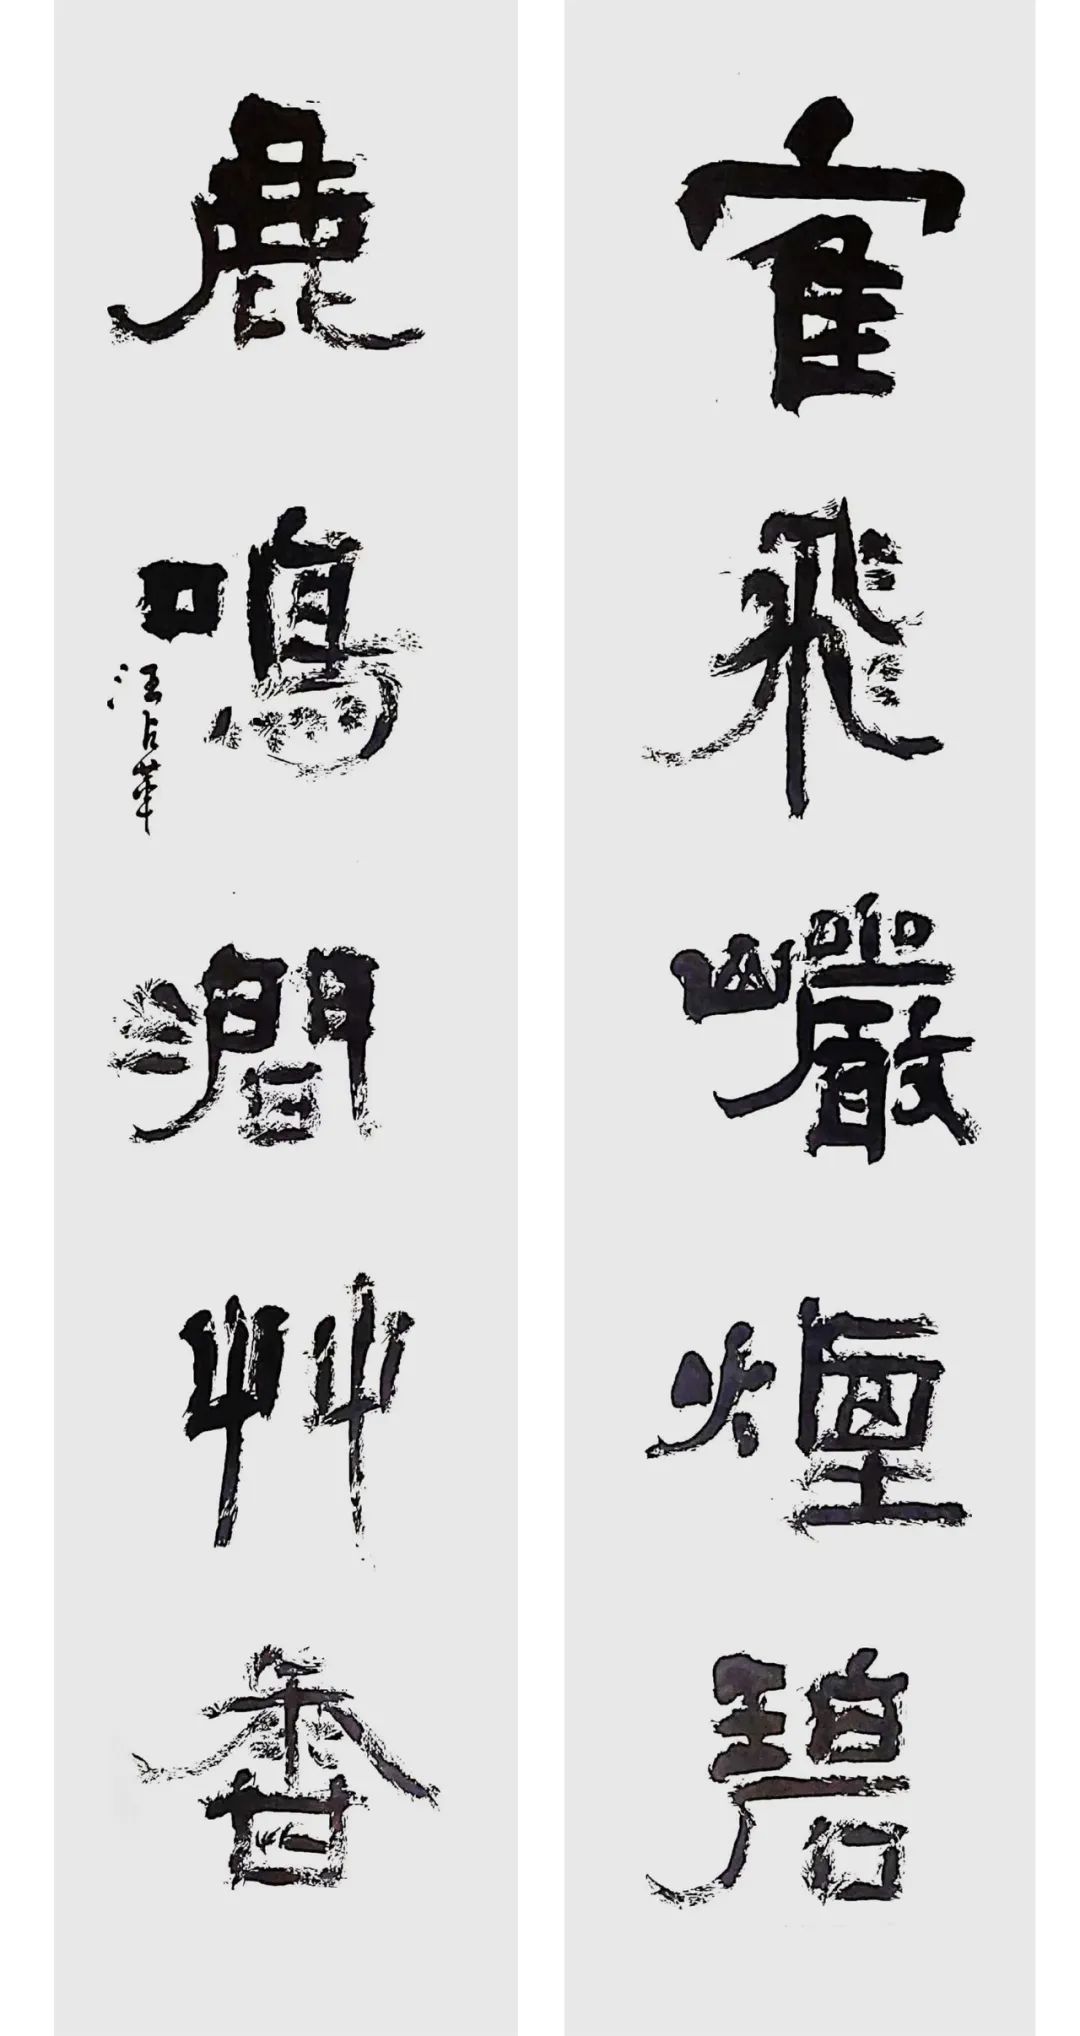 隺飛巖煙碧
鹿鳴澗艸香
汪占華